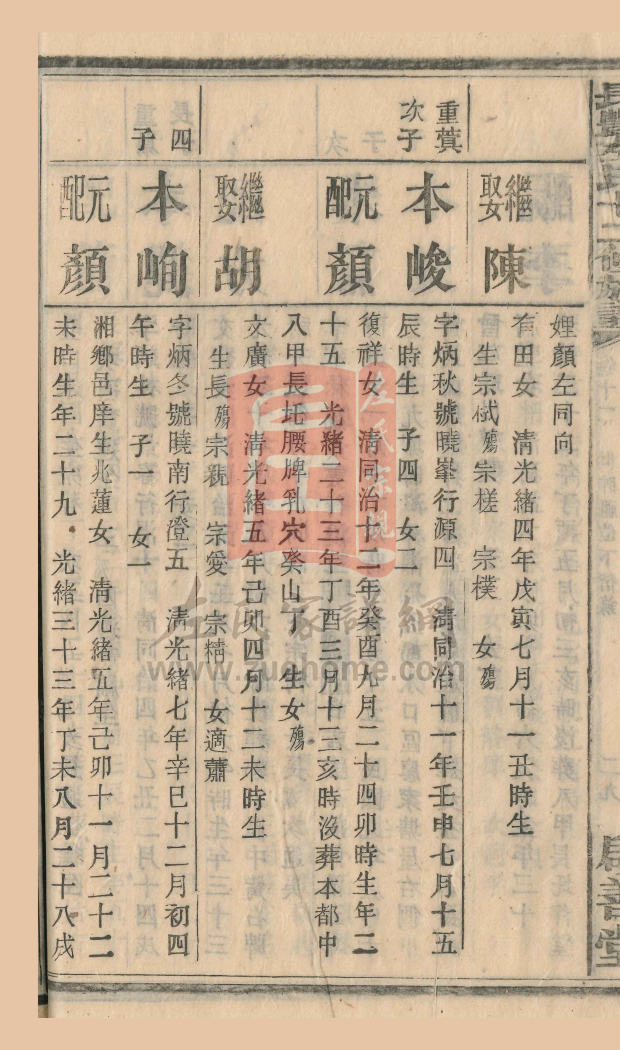 繼娶陳
娌顏左同向
有田女 清光緒四年戊寅七月十一丑時生
生宗栻殤宗槎 宗樸 女殤
重蓂次子
本峻
字炳秋號曉峯行源四 清同治十一年壬申七月十五
辰時生 子四 女二
元配顏
復祥女 清同治十二年癸酉九月二十四卯時生年二
十五 光緒二十三年丁酉三月十三亥時沒葬本都中
八甲長圫腰牌乳穴癸山丁 生女殤
繼娶胡
文廣女 清光緒五年己卯四月十二未時生
生長殤宗親 宗愛 宗精 女適蕭
四子
本峋
字炳冬號曉南行澄五 清光緒七年辛巳十二月初四
午時生 子一 女一
元配顏
湘鄉邑庠生兆蓮女 清光緒五年己卯十一月二十二
未時生年二十九 光緒三十三年丁未八月二十八戌
善堂
左氏家譜網
www.zuohome.com